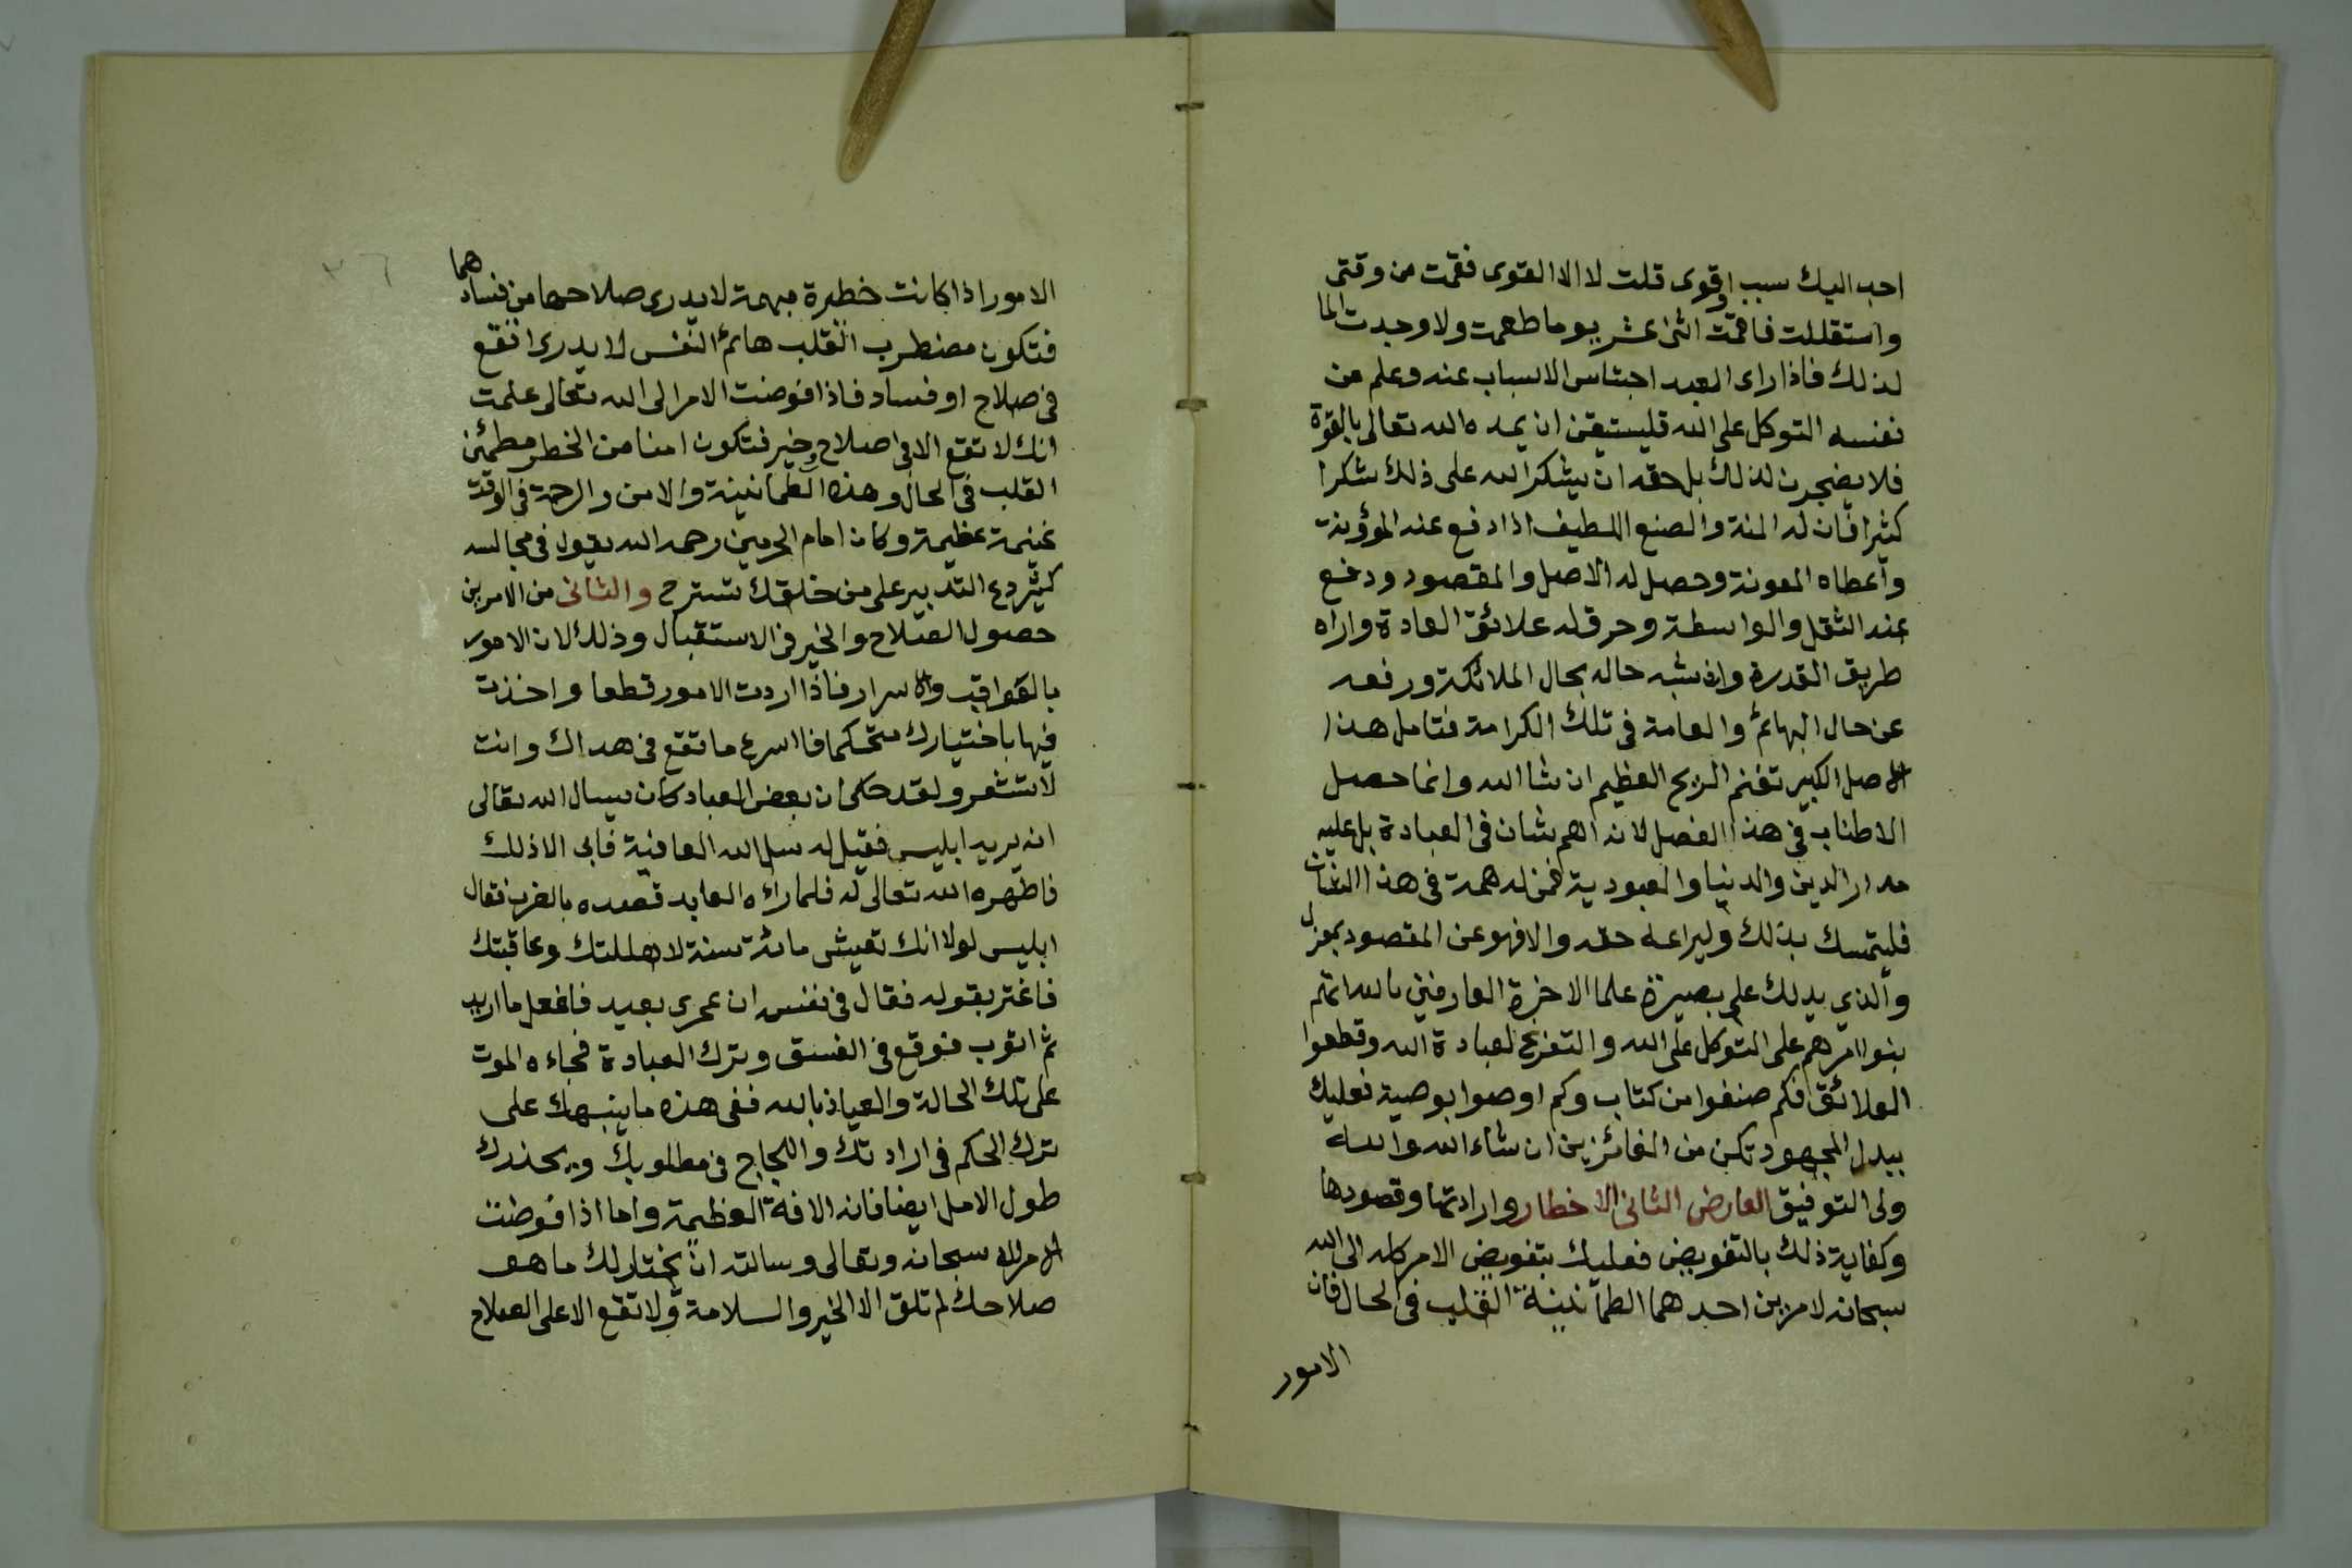 احب اليك سبب او قوى قلت لا الا القوى فقمت من وقتى
واستقللت فاقمت اثنى عشر يوما ما طعمت ولا وجدت الما
لذلك فاذا راى العبد احتباس الاسباب عنه وعلم من
نفسه التوكل على الله فليستيقن ان يمده الله تعالى بالقوة
فلا يضجرن لذلك بل حقه ان يشكر الله على ذلك شكرا
كثيرا فان له المنة والصنع اللطيف اذا دفع عنه المؤونة
واعطاه المعونة وحصل له الاصل والمقصود ودفع
عنه الثقل والواسطة وحرق له علائق العادة واراه
طريق القدرة وان شبه حاله بحال الملائكة ورفعه
عن حال البهائم والعامة فى تلك الكرامة فتامل هذا
الاصل الكبير تغنم الربح العظيم ان شا الله وانما حصل
الاطناب فى هذا الفصل لانه اهم شان فى العبادة بل عليه
مدار الدين والدنيا والعبودية فمن له همة فى هذا الشان
فليتمسك بذلك وليراعه حقه والا فهو عن المقصود بمعزل
والذي يدلك على بصيرة علما الاخرة العارفين بالله انهم
بنوا امرهم على التوكل على الله والتفريج لعبادة الله وقطعوا
العلائق فكم صنفوا من كتاب وكم اوصوا بوصية فعليك
ببدل المجهود تكن من الفائزين ان شاء الله والله
ولى التوفيق العارض الثانى الاخطار وارادتها وقصودها
وكفاية ذلك بالتفويض فعليك بتفويض الامر كله الى الله
سبحانه لامرين احدهما الطمأنينة القلب فى الحال فان
الامور
الامور اذا كانت خطيرة مبهمة لا يدرى صلاحها من فسادهما
فتكون مضطرب القلب هائم النفس لا يدرى اتقع
فى صلاح او فساد فاذا فوضت الامر الى الله تعالى علمت
انك لا تقع الا فى صلاح وخير فتكون امنا من الخطر مطمئن
القلب فى الحال وهذه الطمانينة والامن والرحمة فى الوقت
غنيمة عظيمة وكان امام الحرمين رحمه الله يقول فى مجالسه
كثير دع التدبير على من خلقك تسترح والثانى من الامرين
حصول الصلاح والخير فى الاستقبال وذلك لان الامور
بالعواقب والاسرار فاذا اردت الامور قطعا واخذت
فيها باختيارك متحكما فا اسرع ما تقع فى هداك وانت
لا تشعر ولقد حكى ان بعض العباد كان يسال الله تعالى
انه يريه ابليس فقيل له سل الله العافية فابى الا ذلك
فاظهره الله تعالى له فلما رأه العابد قصده بالضرب فقال
ابليس لولا انك تعيش مائة سنة لاهللتك وعاقبتك
فاغتر بقوله فقال فى نفسه ان عمرى بعيد فافعل ما اريد
ثم اتوب فوقع فى الفسق وترك العبادة فجاءه الموت
على تلك الحالة والعياذ بالله ففى هذه ما ينبهك على
ترك الحكم فى ارادتك واللجاج فى مطلوبك ويحذرك
طول الامل ايضا فانه الافة العظيمة واما اذا فوضت
الامر لله سبحانه وتعالى وسالته ان يختار لك ما هو
صلاحك لم تلق الا الخير والسلامة ولا تقع الا على الصلاح